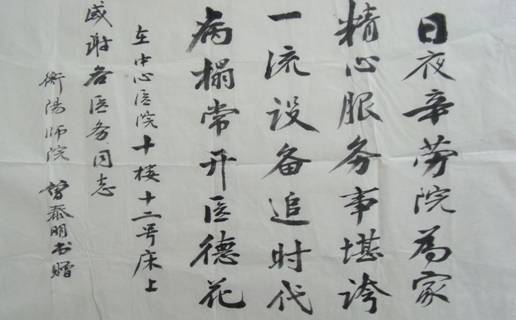 日夜辛劳院为家
精心服务事堪誇
一流设备追时代
病榻常开医德花
在中心医院十楼十二号床上
感谢各医务同志
衡陽师院 曾泰明书赠